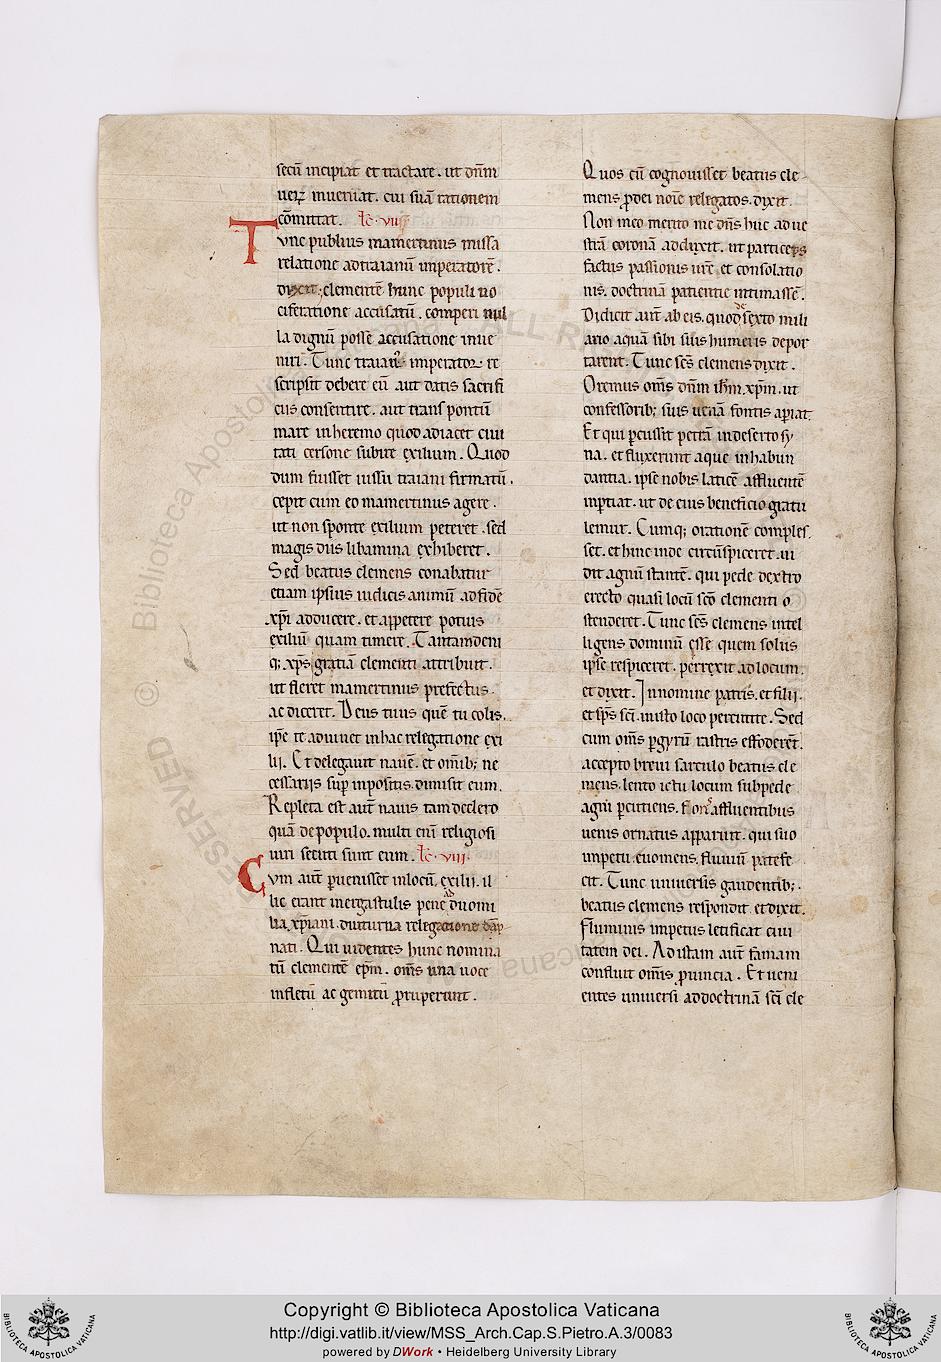 secū incipiat et tractare. ut dnm̄
uerꝝ inueniat. cui suā rationem
cōmittat. lc̄. vii
Tunc publius mamertinus missa
relatione ad traianū imperatorē.
dixit; clementē hunc populi uo
ciferatione accusatū. comperi nul
la dignū posse accusatione inue
niri. Tunc traianꝰ imperator re
scripsit debere eū aut datis sacrifi
ciis consentire. aut trans pontū
mare in heremo quod adiacet ciui
tati cersone subire exilium. Quod
dum fuisset iussu traiani firmatū.
cepit cum eo mamertinus agere.
ut non sponte exilium peteret. sed
magis diis libamina exhiberet.
Sed beatus clemens conabatur
etiam ipsius iudicis animū ad fidē
xp̄i adducere. et appetere potius
exiliū quam timere. Tantam deni
q; xp̄s gratiā clementi attribuit.
ut fleret mamertinus prefectus.
ac diceret. Deus tuus quē tu colis.
ip̄e te adiuuet in hac relegatione exi
lii. Et delegauit nauē. et om̄ib; ne
cessariis sup̄ inpositis. dimisit eum.
Repleta est aut̄ nauis tam de clero
quā de populo. multi eni religiosi
uiri secuti sunt eum. lc̄. viii.
Cum aut̄ ꝑuenisset in locū exilii. il
lic erant in ergastulis pene ad duo mi
lia xp̄iani. diuturna relegatione dāp
nati. Qui uidentes hunc nomina
tū clementē ep̄m. om̄s una uoce
in fletū ac gemitū proruperunt.
Quos cū cognouisset beatus cle
mens ꝓ dei noīe relegatos. dixit.
Non meo merito me dn̄s huc ad ue
strā coronā adduxit. ut particeps
factus passionis ur̄e. et consolatio
nis. doctrinā patientie intimassē.
Didicit aut̄ ab eis. quod de sexto mili
ario aquā sibi suis humeris depor
tarent. Tunc sc̄s clemens dixit.
Oremus om̄s dn̄m ih̄m xp̄m. ut
confessorib; suis uenā fontis aperiat.
Et qui ꝑcussit petrā in deserto sy
na. et fluxerunt aque in habun
dantia. ipse nobis laticē affluentē
inptiat. ut de eius beneficio gratu
lemur. Cumq; orationē comples
set. et hinc inde circūspiceret. ui
dit agnū stantē. qui pede dextro
erecto quasi locū sc̄o clementi o
stenderet. Tunc sc̄s clemens intel
ligens dominū esse quem solus
ipse respiceret. perrexit ad locum.
et dixit. In nomine patris. et filii.
et sp̄s sc̄i. in isto loco percutite. Sed
cum om̄s ꝑ gyrū rastris effoderēt.
accepto breui sarculo beatus cle
mens. lento ictu locum sub pede
agni ꝑcutiens. fonsꝰ affluentibus
uenis ornatus apparuit. qui suo
impetu euomens. fluuiū patefe
cit. Tunc uniuersis gaudentib;
beatus clemens respondit et dixit.
fluminis impetus letificat ciui
tatem dei. Ad istam aut̄ famam
confluit om̄is ꝓuincia. Et ueni
entes uniuersi ad doctrinā sc̄i cle
Copyright © Biblioteca Apostolica Vaticana
http://digi.vatlib.it/view/MSS_Arch.Cap.S.Pietro.A.3/0083
powered by DWork • Heidelberg University Library